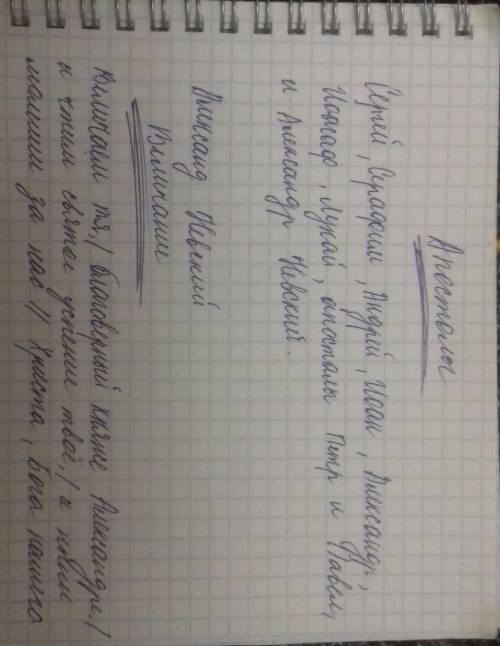 Апостолы
Сергей, Серафим, Андрей, Иоан, Александр,
Иоасаф, Лукай, апосталы Петр и Павел,
и Александр Невский.
Александ Невский
Величание
Величаем тя,/ благоверный княже Александре,/
и чтим святое успение твое,/ и
молиши за нас // Христа, Бога нашего